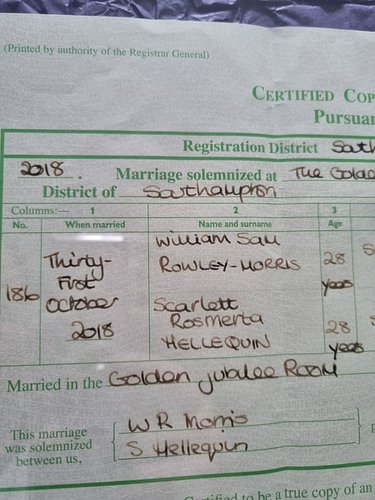 (Printed by authority of the Registrar General)
CERTIFIED COP
Pursuan
Registration District South
2018. Marriage solemnized at The Golde
District of Southampton
Columns:— 1 2 3
No. When married Name and surname Age
186 Thirty-First October 2018
William Saul ROWLEY-MORRIS 28 years
Scarlett Rosmerta HELLEQUIN 28 years
Married in the Golden Jubilee Room
This marriage was solemnized between us,
W R Morris
S Hellequin
Certified to be a true copy of an